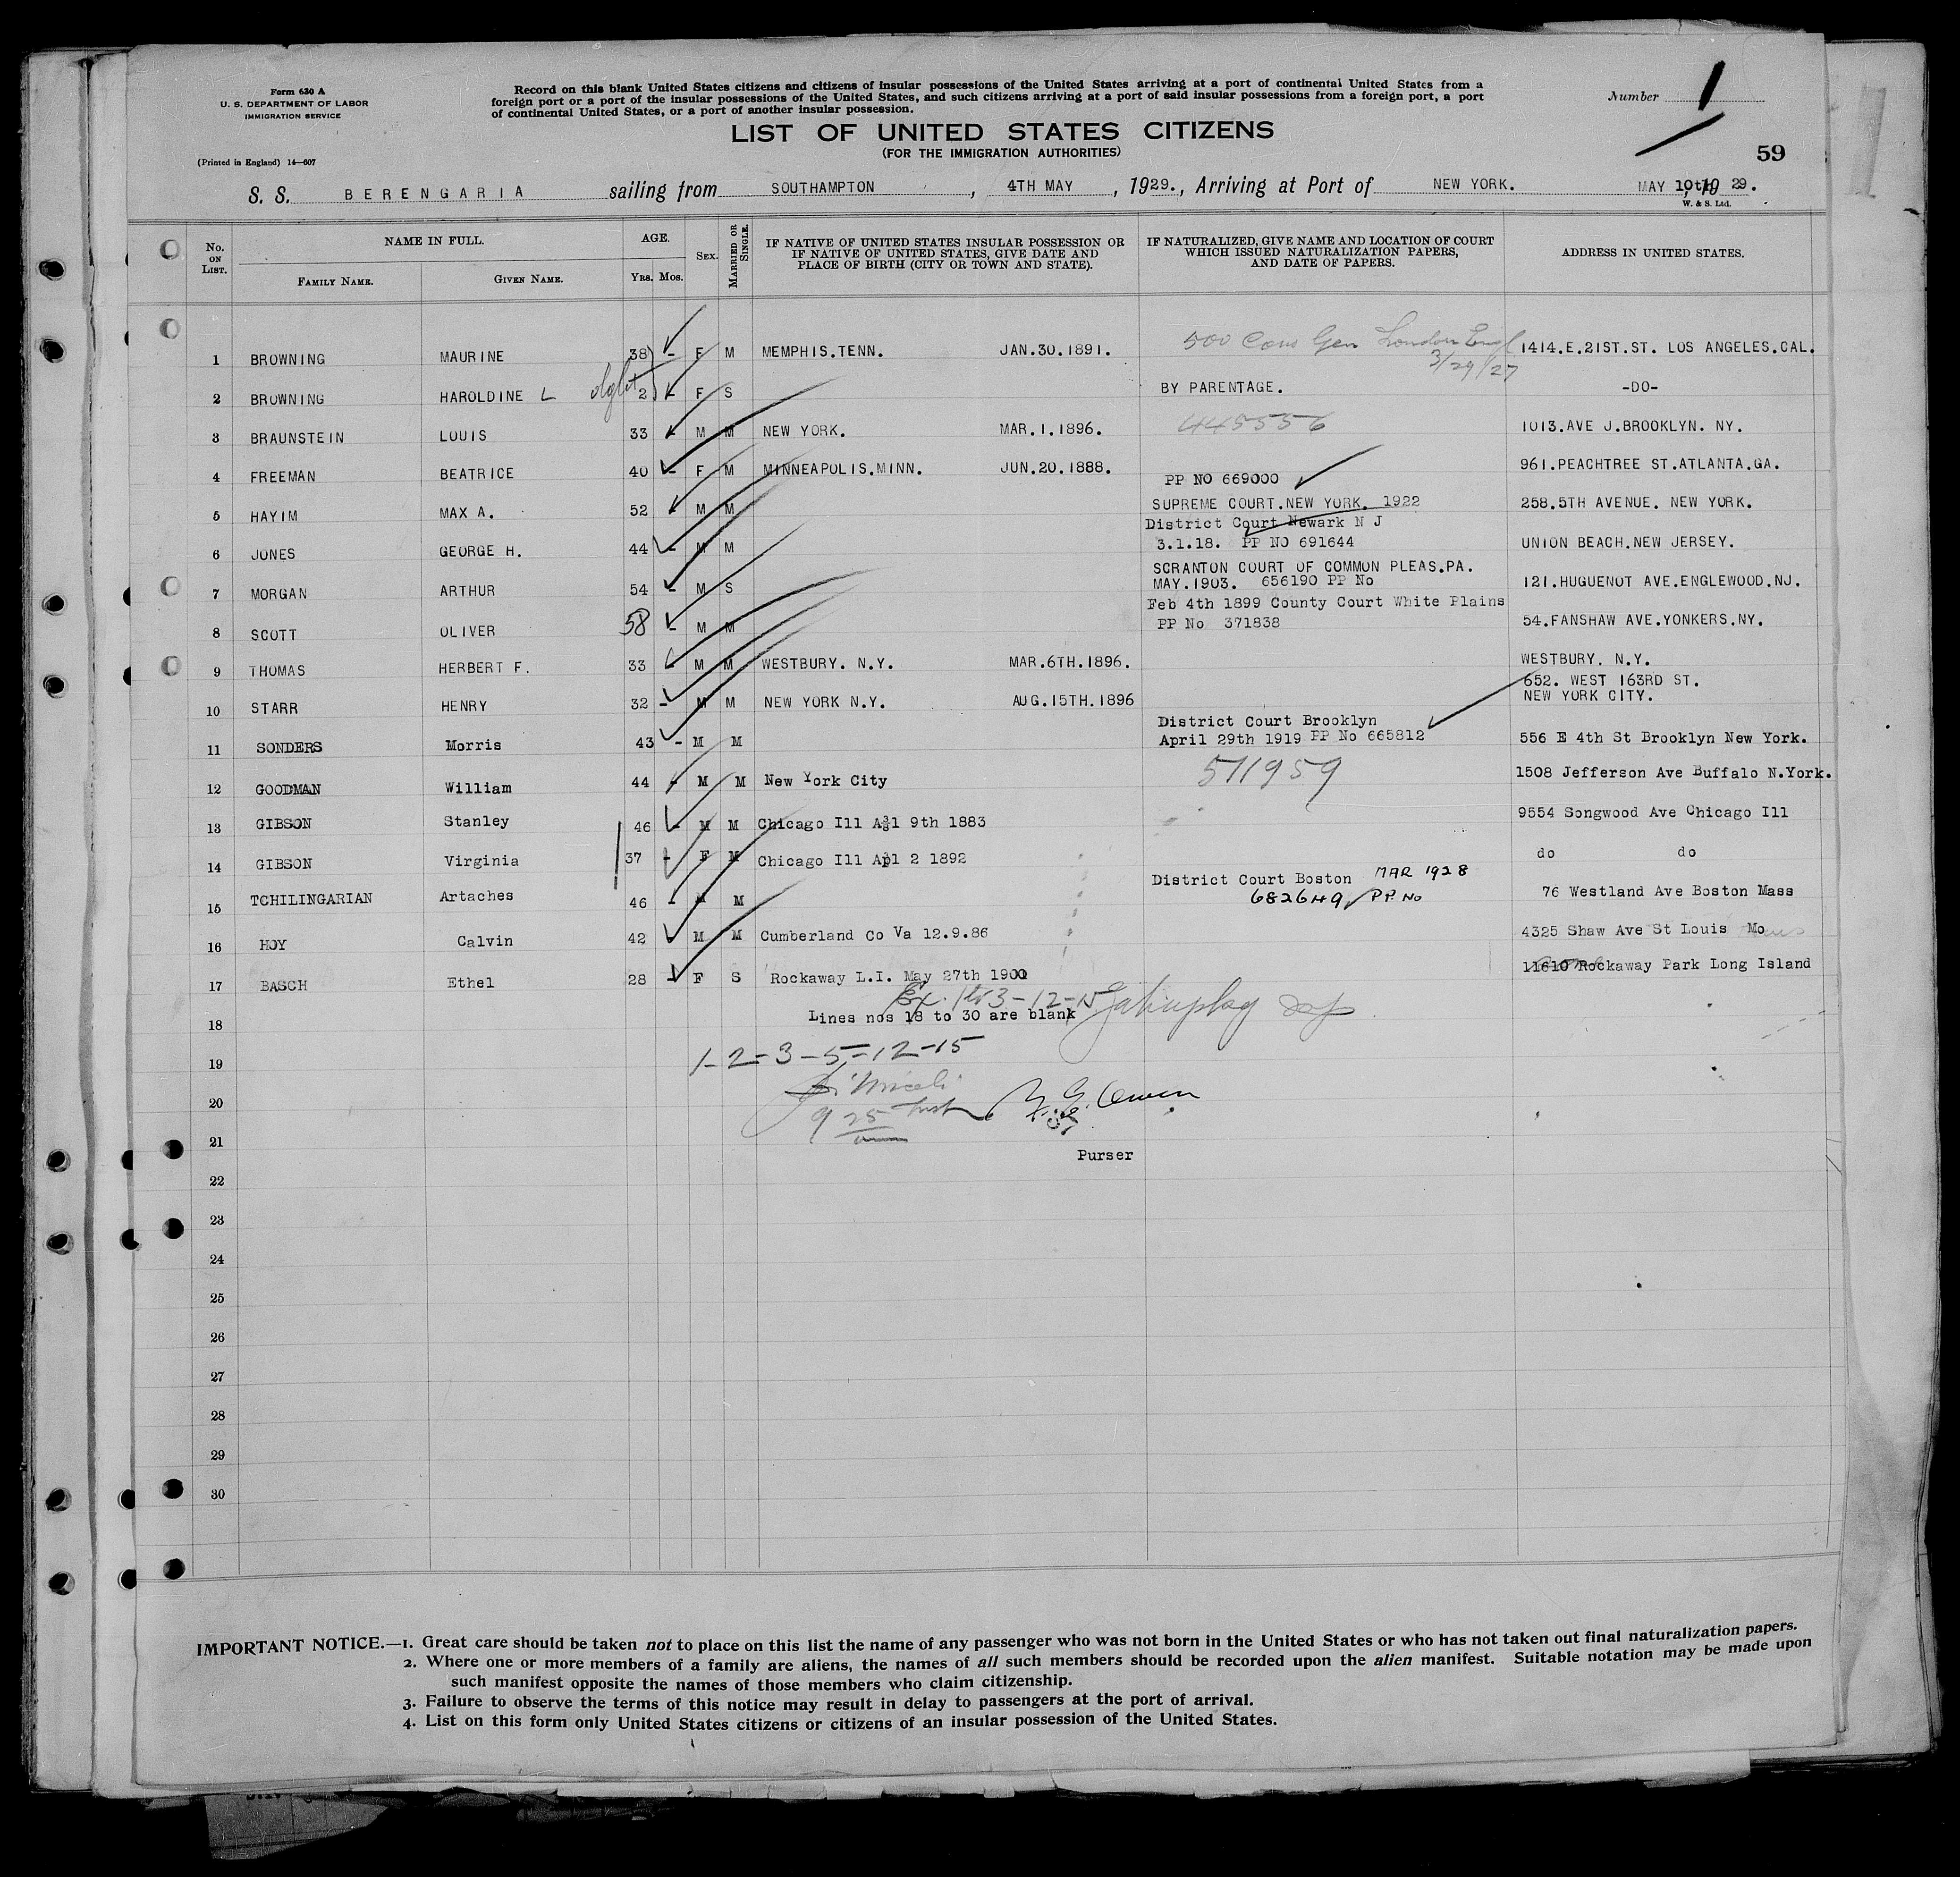 Form 630 A
U. S. DEPARTMENT OF LABOR
IMMIGRATION SERVICE
(Printed in England) 14—607
Record on this blank United States citizens and citizens of insular possessions of the United States arriving at a port of continental United States from a
foreign port or a port of the insular possessions of the United States, and such citizens arriving at a port of said insular possessions from a foreign port, a port
of continental United States, or a port of another insular possession.
LIST OF UNITED STATES CITIZENS
(FOR THE IMMIGRATION AUTHORITIES)
Number 1
59
S. S. BERENGARIA sailing from SOUTHAMPTON, 4TH MAY, 1929., Arriving at Port of NEW YORK. MAY 10th, 19 29.
W. & S. Ltd.
No. ON LIST. NAME IN FULL. AGE. SEX. MARRIED OR SINGLE. IF NATIVE OF UNITED STATES INSULAR POSSESSION OR IF NATIVE OF UNITED STATES, GIVE DATE AND PLACE OF BIRTH (CITY OR TOWN AND STATE). IF NATURALIZED, GIVE NAME AND LOCATION OF COURT WHICH ISSUED NATURALIZATION PAPERS, AND DATE OF PAPERS. ADDRESS IN UNITED STATES.
FAMILY NAME. GIVEN NAME. YRS. MOS.
1 BROWNING MAURINE 38 - F M MEMPHIS.TENN. JAN.30.1891. 500 Cons Gen London Engl 3/29/27 1414.E.21ST.ST. LOS ANGELES.CAL.
2 BROWNING HAROLDINE L 2 - F S BY PARENTAGE. -DO-
3 BRAUNSTEIN LOUIS 33 - M M NEW YORK. MAR.1.1896. 445556 1013.AVE J.BROOKLYN. NY.
4 FREEMAN BEATRICE 40 - F M MINNEAPOLIS.MINN. JUN.20.1888. PP NO 669000 961.PEACHTREE ST.ATLANTA.GA.
5 HAYIM MAX A. 52 - M M SUPREME COURT.NEW YORK. 1922 258.5TH AVENUE. NEW YORK.
6 JONES GEORGE H. 44 - M M District Court Newark N J 3.1.18. PP NO 691644 UNION BEACH.NEW JERSEY.
7 MORGAN ARTHUR 54 - M S SCRANTON COURT OF COMMON PLEAS.PA. MAY.1903. 656190 PP No 121.HUGUENOT AVE.ENGLEWOOD.NJ.
8 SCOTT OLIVER 58 - M M Feb 4th 1899 County Court White Plains PP No 371838 54.FANSHAW AVE.YONKERS.NY.
9 THOMAS HERBERT F. 33 - M M WESTBURY. N.Y. MAR.6TH.1896. WESTBURY. N.Y.
10 STARR HENRY 32 - M M NEW YORK N.Y. AUG.15TH.1896 652. WEST 163RD ST. NEW YORK CITY.
11 SONDERS Morris 43 - M M District Court Brooklyn April 29th 1919 PP No 665812 556 E 4th St Brooklyn New York.
12 GOODMAN William 44 - M M New York City 511959 1508 Jefferson Ave Buffalo N.York.
13 GIBSON Stanley 46 - M M Chicago Ill 9th 1883 9554 Songwood Ave Chicago Ill
14 GIBSON Virginia 37 - F M Chicago Ill Apl 2 1892 do do
15 TCHILINGARIAN Artaches 46 - M M District Court Boston MAR 1928 682649 PP No 76 Westland Ave Boston Mass
16 HOY Calvin 42 - M M Cumberland Co Va 12.9.86 4325 Shaw Ave St Louis Mo
17 BASCH Ethel 28 - F S Rockaway L.I. May 27th 1900 11610 Rockaway Park Long Island
18 Lines nos 18 to 30 are blank
19 1-2-3-5-12-15
20
21
Purser
22
23
24
25
26
27
28
29
30
IMPORTANT NOTICE.—1. Great care should be taken not to place on this list the name of any passenger who was not born in the United States or who has not taken out final naturalization papers.
2. Where one or more members of a family are aliens, the names of all such members should be recorded upon the alien manifest. Suitable notation may be made upon
such manifest opposite the names of those members who claim citizenship.
3. Failure to observe the terms of this notice may result in delay to passengers at the port of arrival.
4. List on this form only United States citizens or citizens of an insular possession of the United States.